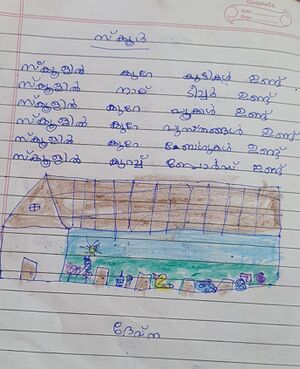 classmate
Date
Page
സ്കൂൾ
സ്കൂളിൽ കുറേ കുട്ടികൾ ഉണ്ട്
സ്കൂളിൽ നാല് ടീച്ചർ ഉണ്ട്
സ്കൂളിൽ കുറേ പൂക്കൾ ഉണ്ട്
സ്കൂളിൽ കുറേ പുസ്തങ്ങൾ ഉണ്ട്
സ്കൂളിൽ കുറേ ഉണ്ട്
സ്കൂളിൽ ഉണ്ട്
ദേവ്ന